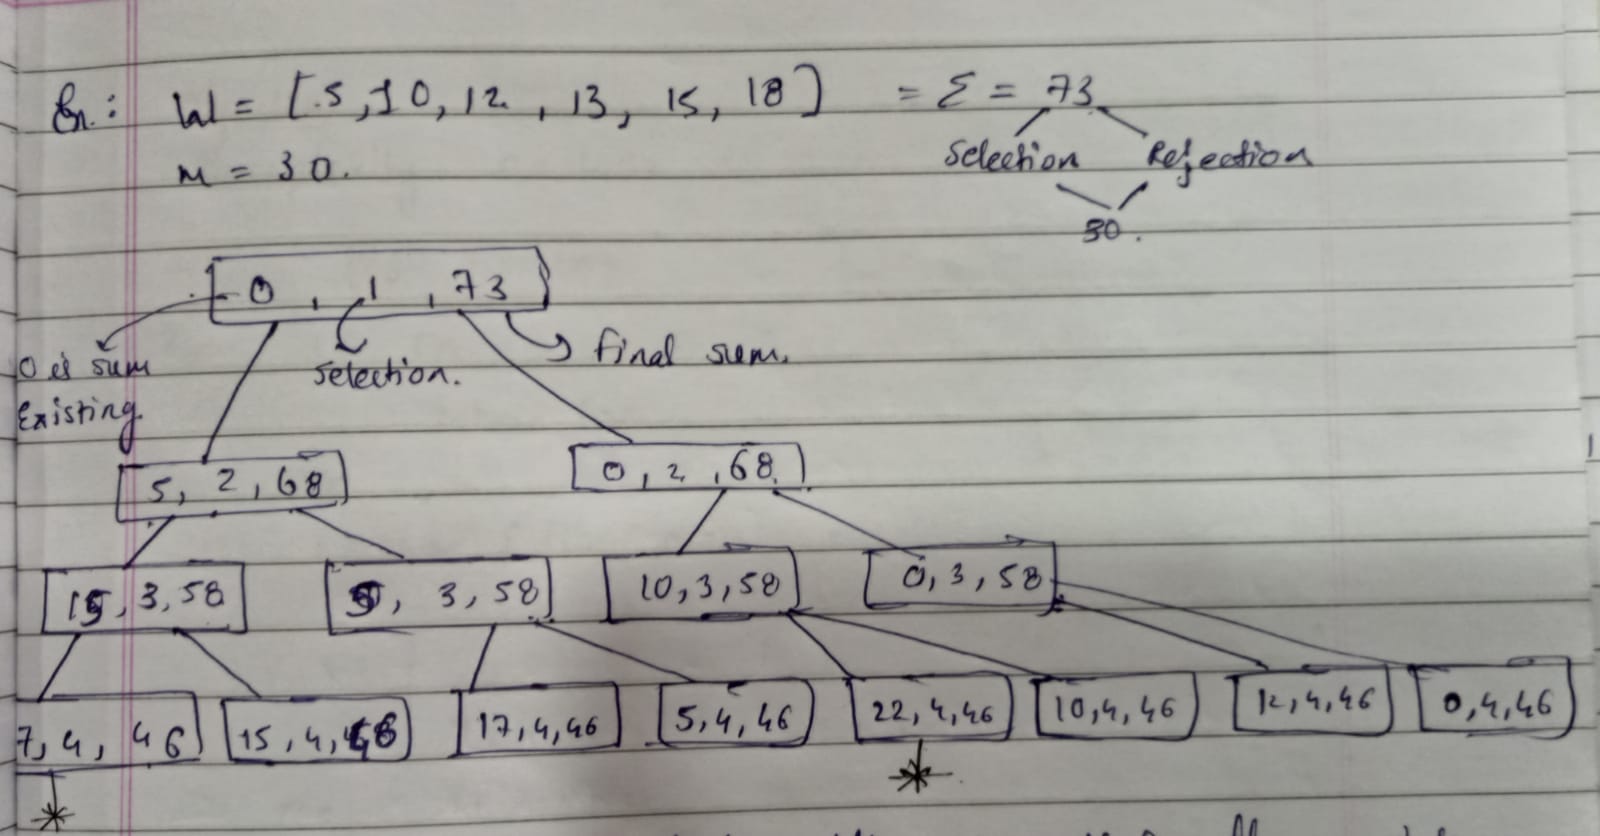 Ex.: W = [.5, 10, 12, 13, 15, 18] = Σ = 73
Selection Rejection
m = 30.
30.
0, 1, 73
0 is sum
Existing.
selection.
final sum.
5, 2, 68 0, 2, 68
15, 3, 58 5, 3, 58 10, 3, 58 0, 3, 58
7, 4, 46 15, 4, 46 17, 4, 46 5, 4, 46 22, 4, 46 10, 4, 46 12, 4, 46 0, 4, 46
* *